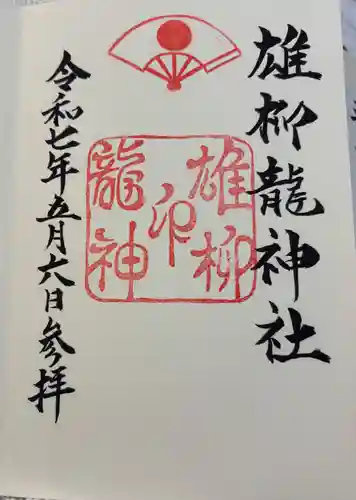 雄柳龍神社
雄柳
龍神
印
令和七年五月六日参拝